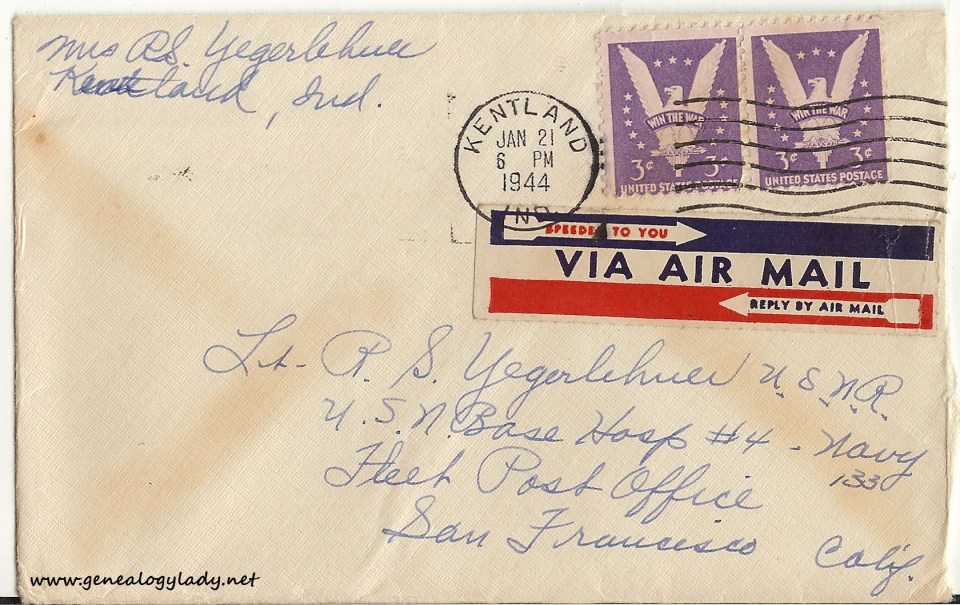 Mrs R.S. Yegerlehner
Kentland, Ind.
KENTLAND
JAN 21
6 PM
1944
IND.
WIN THE WAR
3¢ 3¢
UNITED STATES POSTAGE
WIN THE WAR
3¢ 3¢
UNITED STATES POSTAGE
SPEEDED TO YOU
VIA AIR MAIL
REPLY BY AIR MAIL
Lt. R. S. Yegerlehner U.S.N.R.
U.S.N. Base Hosp #4 - Navy
133
Fleet Post Office
San Francisco Calif.
www.genealogylady.net